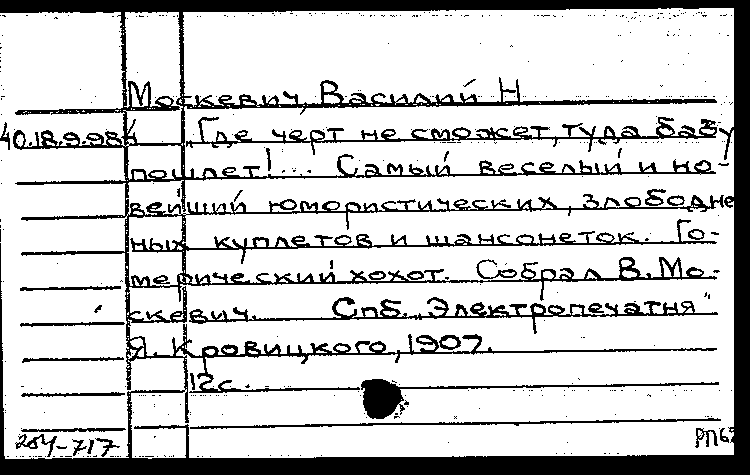 Москевич, Василий Н
40.18.9.98 „Где черт не сможет, туда бабу
пошлет!... Самый веселый и но-
вейший юмористических, злободне
ных куплетов и шансонеток. Го-
мерический хохот. Собрал В. Мо-
скевич. Спб. „Электропечатня"
Я. Кровицкого, 1907.
12с.
204-717